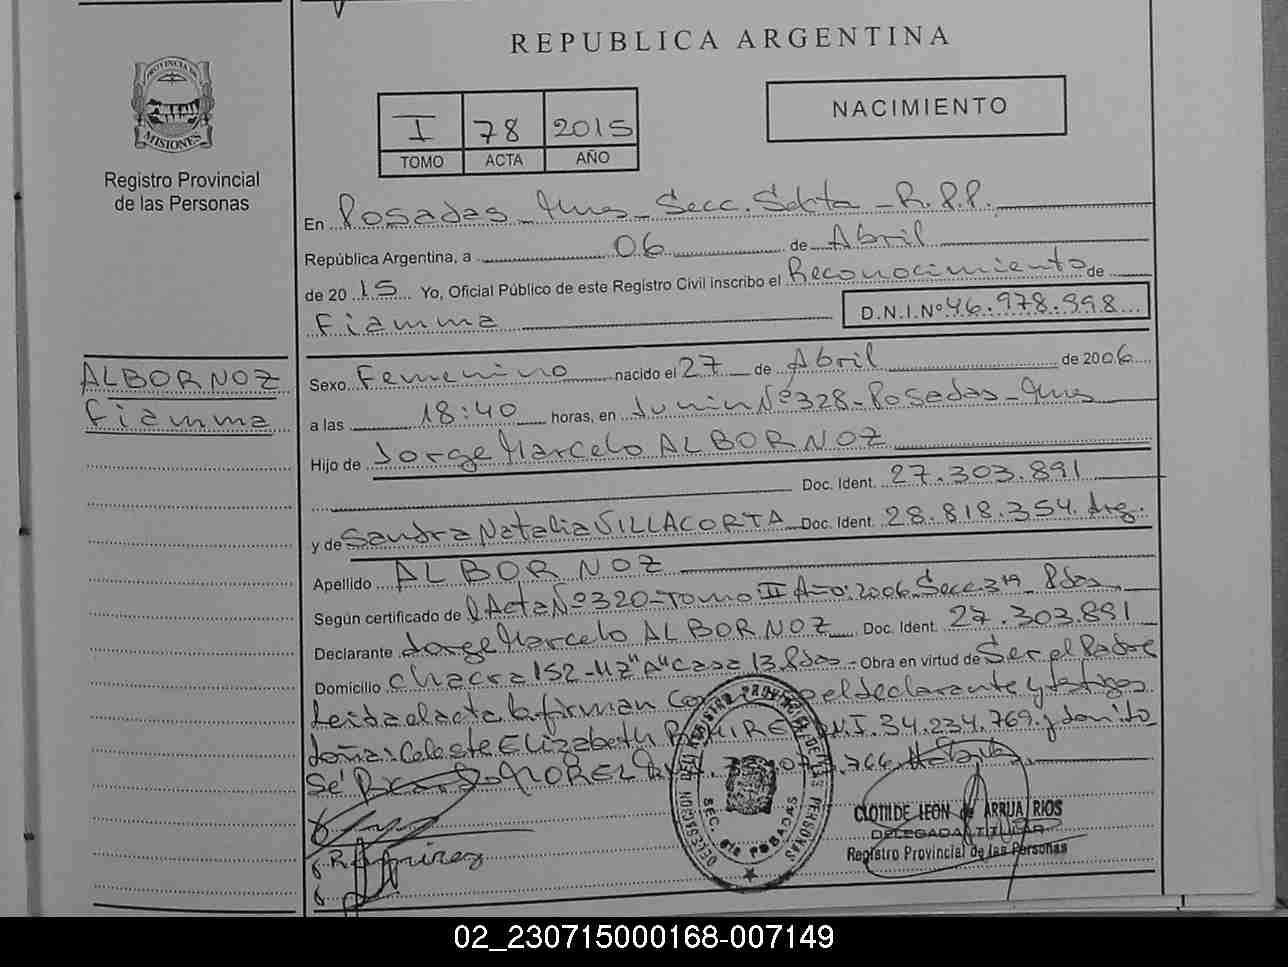 REPUBLICA ARGENTINA
PROVINCIA DE
MISIONES
Registro Provincial
de las Personas
I 78 2015
TOMO ACTA AÑO
NACIMIENTO
En Posadas - Mnes - Secc. Sexta - R.P.P.
República Argentina, a 06 de Abril
de 2015 Yo, Oficial Público de este Registro Civil inscribo el Reconocimiento de
Fiamma D.N.I.Nº 46.978.998
ALBORNOZ
Fiamma
Sexo Femenino nacido el 27 de Abril de 2006
a las 18:40 horas, en Junin Nº 328 - Posadas - Mnes
Hijo de Jorge Marcelo ALBORNOZ
Doc. Ident. 27.303.891
y de Sandra Natalia VILLACORTA Doc. Ident. 28.818.354. Arg.
Apellido ALBORNOZ
Según certificado de l Acta Nº 320 - Tomo II Año: 2006. Secc. 3ra Pdas
Declarante Jorge Marcelo ALBORNOZ Doc. Ident. 27.303.891
Domicilio Chacra 152 - Mz "A" Casa 13. Pdas - Obra en virtud de Ser el Padre
Leida el acta la firman el declarante y testigos
doña: Celeste Elizabeth 34.234.769. y don
MOREL
DELEGADA TITULAR
CLOTILDE LEON de ARRUA RIOS
Registro Provincial de las Personas
REGISTRO PROVINCIAL DE LAS PERSONAS
SEC. 6ta POSADAS
Ramirez
02_230715000168-007149